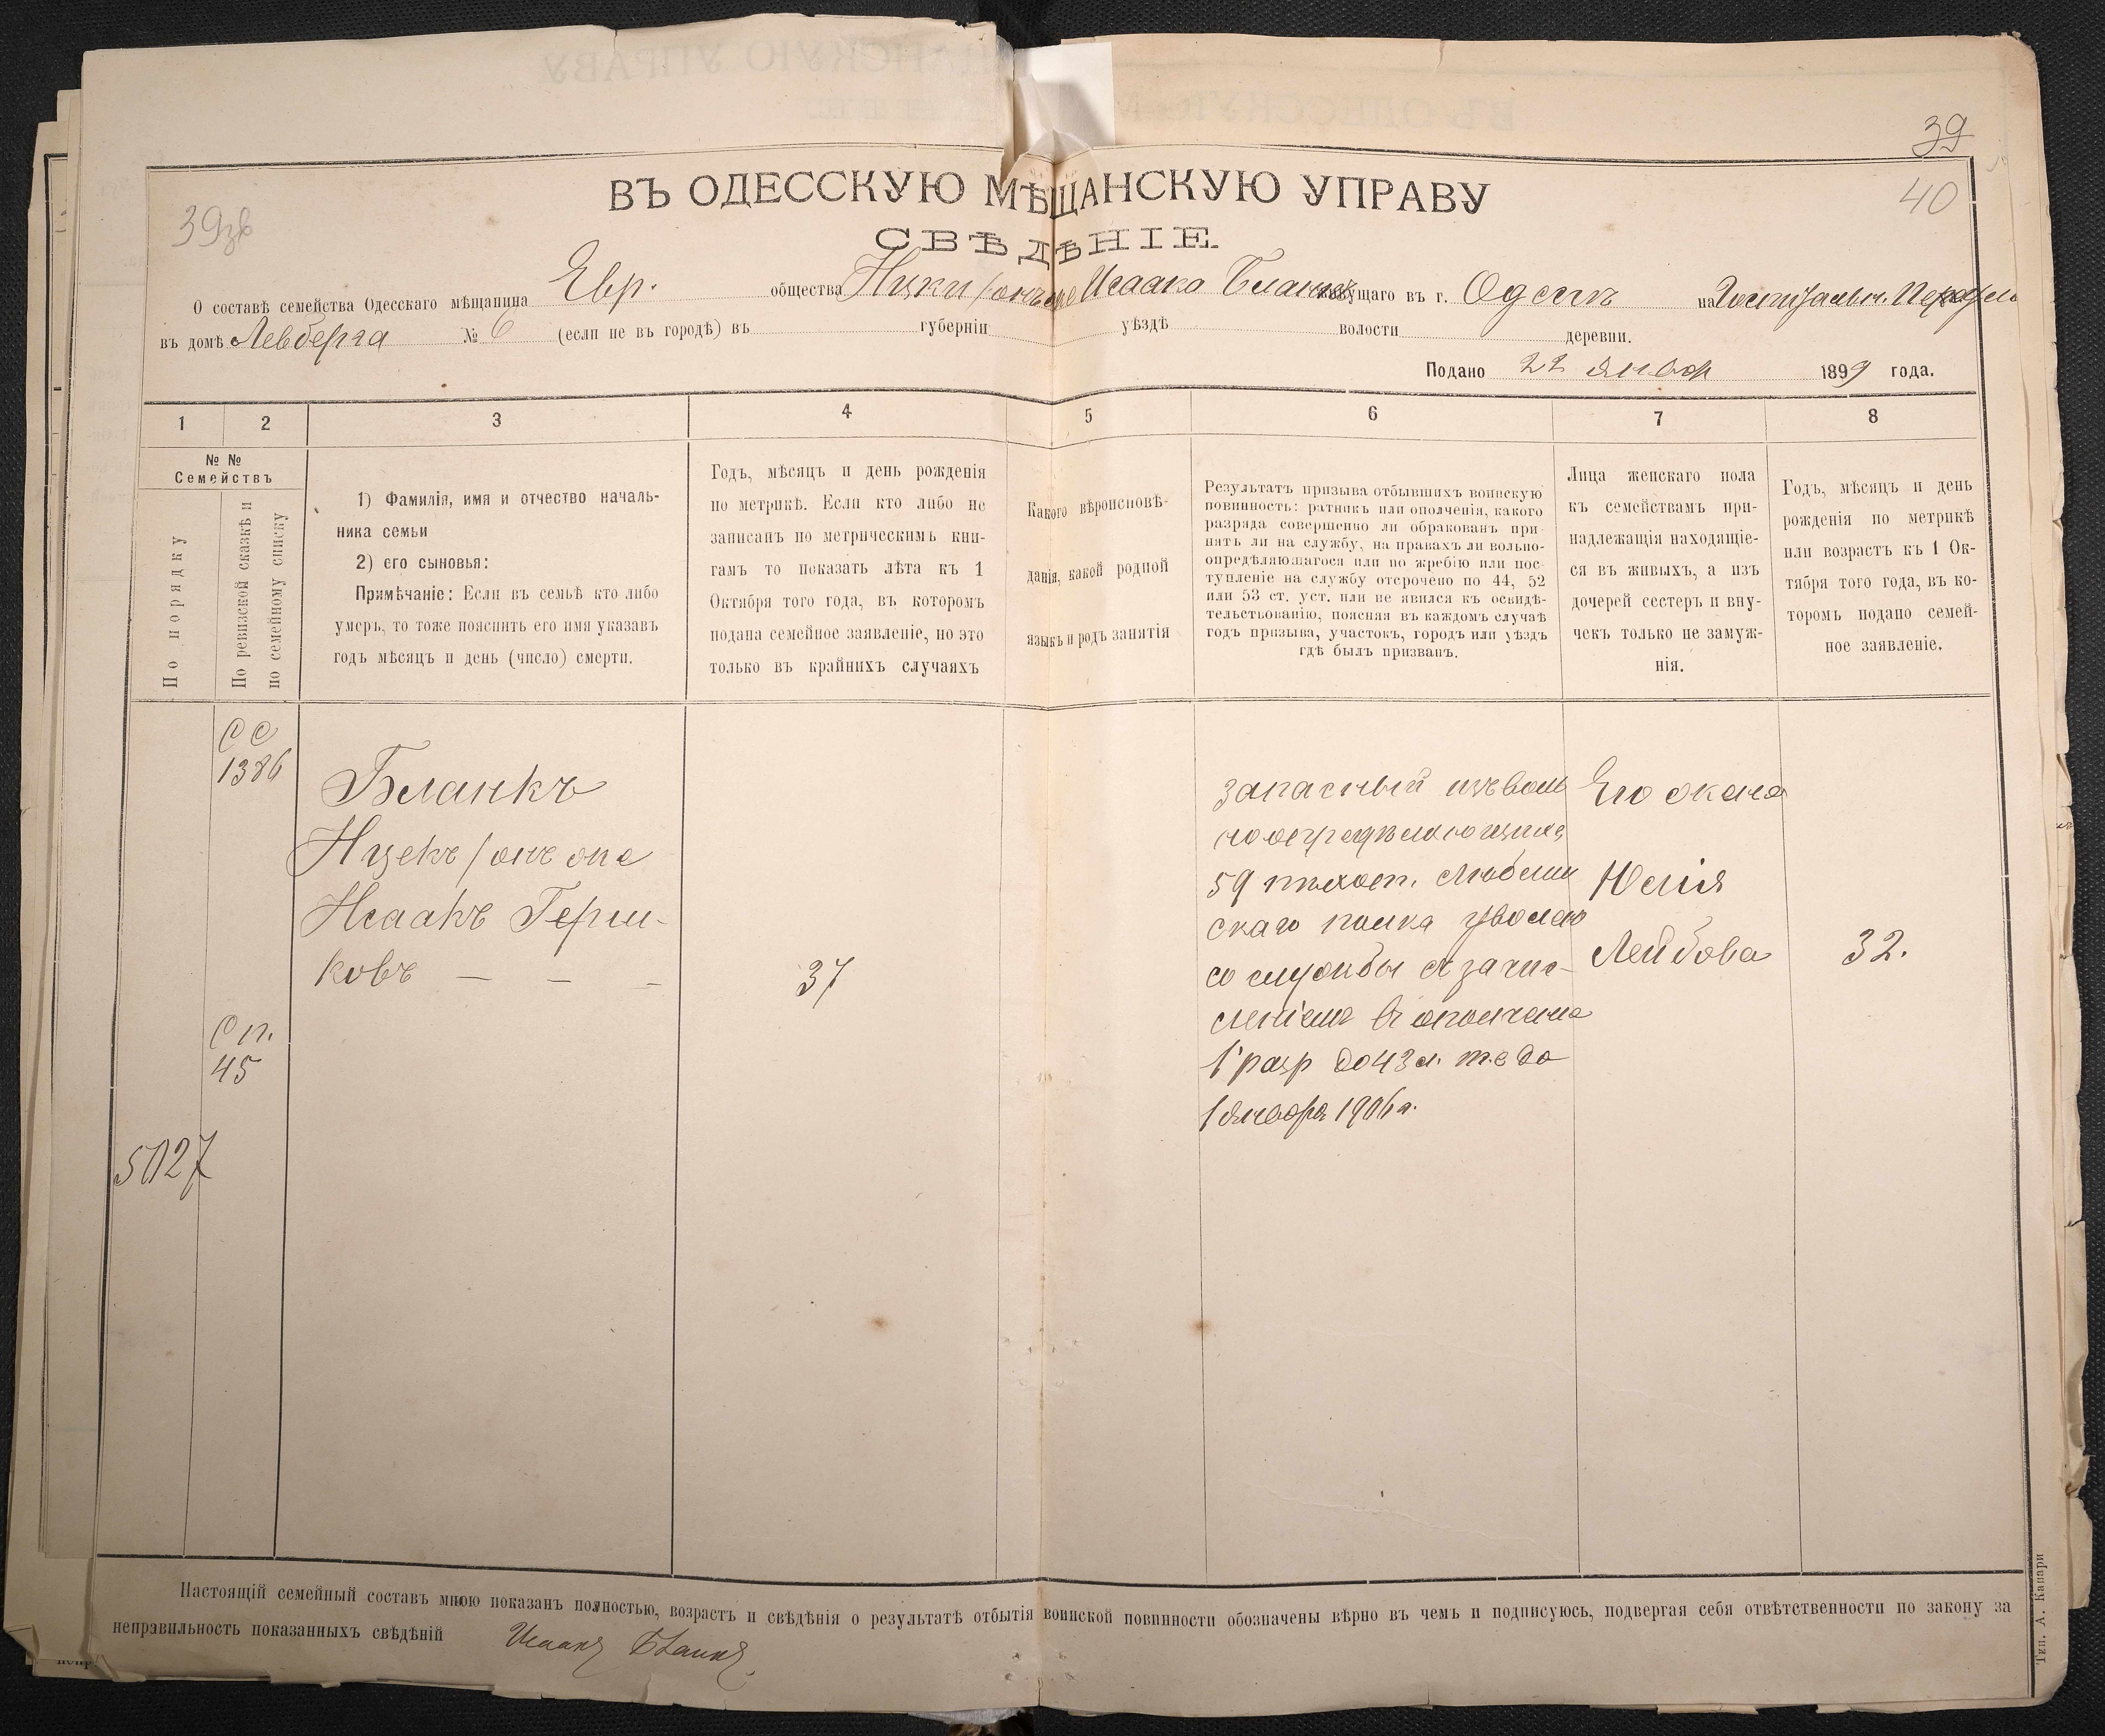 39
40
39зв
ВЪ ОДЕССКУЮ МѢЩАНСКУЮ УПРАВУ
СВѢДѢНІЕ.
О составѣ семейства Одесскаго мѣщанина Евр. общества Ицки / онъ же Исаака Бланкъ живущаго въ г. Одессѣ на Госпитальн.
въ домѣ Левберга № 6 (если не въ городѣ) въ губерніи уѣздѣ волости деревни.
Подано 22 Января 1899 года.
1 2 3 4 5 6 7 8
№ №
Семействъ
По порядку
По ревизской сказкѣ и
по семейному списку
1) Фамилія, имя и отчество началь-
ника семьи
2) его сыновья:
Примѣчаніе: Если въ семьѣ кто либо
умеръ, то тоже пояснить его имя указавъ
годъ мѣсяцъ и день (число) смерти.
Годъ, мѣсяцъ и день рожденія
по метрикѣ. Если кто либо не
записанъ по метрическимъ кни-
гамъ то показать лѣта къ 1
Октября того года, въ которомъ
подана семейное заявленіе, но это
только въ крайнихъ случаяхъ
Какого вѣроисповѣ-
данія, какой родной
языкъ и родъ занятія
Результатъ призыва отбывшихъ воинскую
повинность: ратникъ или ополченія, какого
разряда совершенно ли обракованъ при-
нятъ ли на службу, на правахъ ли вольно-
опредѣляющагося или по жребію или пос-
тупленіе на службу отсрочено по 44, 52
или 53 ст. уст. или не явился къ освидѣ-
тельствованію, поясняя въ каждомъ случаѣ
годъ призыва, участокъ, городъ или уѣздъ
гдѣ былъ призванъ.
Лица женскаго пола
къ семействамъ при-
надлежащія находящіе-
ся въ живыхъ, а изъ
дочерей сестеръ и вну-
чекъ только не замуж-
нія.
Годъ, мѣсяцъ и день
рожденія по метрикѣ
или возрастъ къ 1 Ок-
тября того года, въ ко-
торомъ подано семей-
ное заявленіе.
СС
1386
Сп.
45
5027
Бланкъ
Ицекъ / онъ же
Исаакъ Герш-
ковъ — — —
37
запасный изъ воль
ноопредѣляющихс
59 пѣхот. Люблин
скаго полка уволен
со службы съ зачис-
леніемъ въ ополченіе
1 разр до 43 л. т.е до
1 Января 1906 г.
Его жена
Юлія
Лейбова
32.
Настоящій семейный составъ мною показанъ полностью, возрастъ и свѣдѣнія о результатѣ отбытія воинской повинности обозначены вѣрно въ чемъ и подписуюсь, подвергая себя отвѣтственности по закону за
неправильность показанныхъ свѣдѣній Исаакъ Бланкъ
Тип. А. Капари